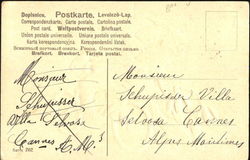 Dopisnice. Postkarte. Levelező-Lap.
Correspondenzkarte. Carte postale. Cartolina postale.
Post card. Weltpostverein. Briefkort.
Union postale universelle. Unione postale universale.
Karta korespondencyjna. Korespondenční lístek.
Brefkort. Brevkort. Tarjeta postal.
Monsieur
Schupisser
Villa
Cannes A.M.s
Monsieur
Schupisser Villa
Cannes
Alpes Maritimes